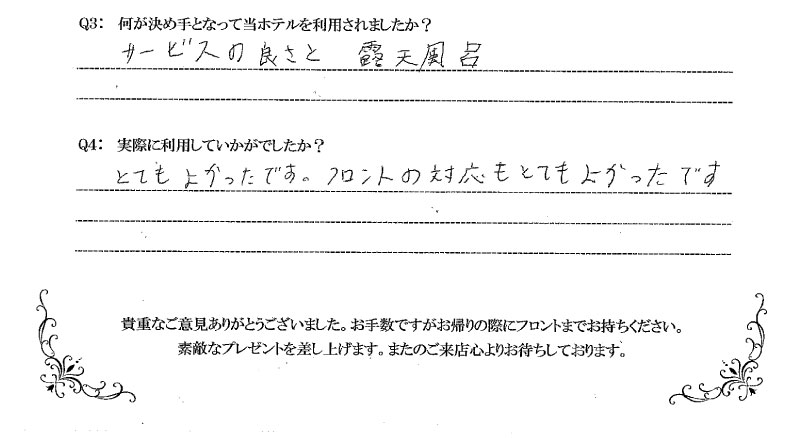 Q3: 何が決め手となって当ホテルを利用されましたか？
サービスの良さと 露天風呂
Q4: 実際に利用していかがでしたか？
とてもよかったです。フロントの対応もとてもよかったです
貴重なご意見ありがとうございました。お手数ですがお帰りの際にフロントまでお持ちください。
素敵なプレゼントを差し上げます。またのご来店心よりお待ちしております。